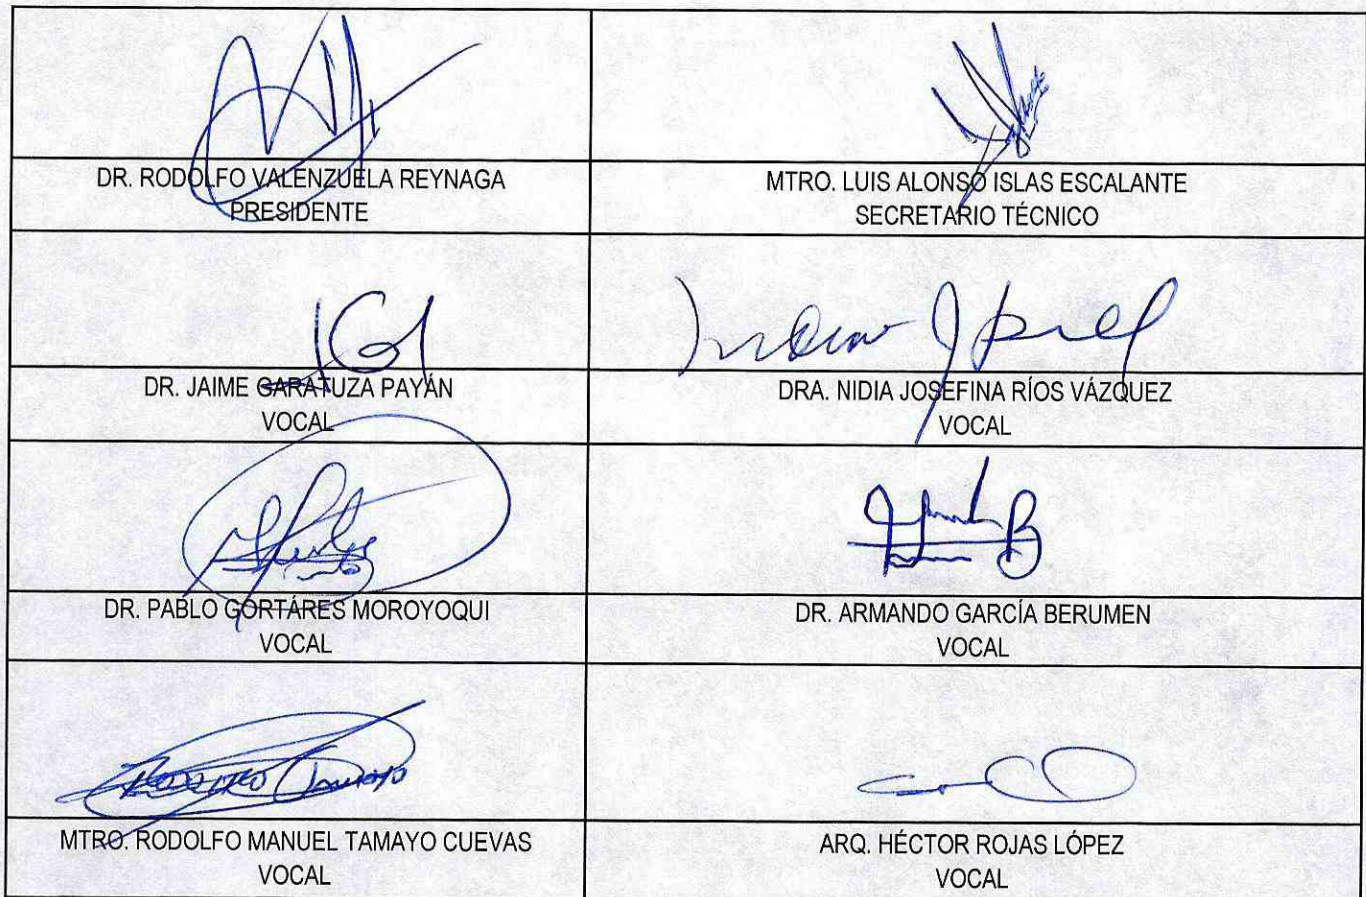 DR. RODOLFO VALENZUELA REYNAGA
PRESIDENTE
MTRO. LUIS ALONSO ISLAS ESCALANTE
SECRETARIO TÉCNICO
DR. JAIME GARATUZA PAYÁN
VOCAL
DRA. NIDIA JOSEFINA RÍOS VÁZQUEZ
VOCAL
DR. PABLO GORTÁRES MOROYOQUI
VOCAL
DR. ARMANDO GARCÍA BERUMEN
VOCAL
MTRO. RODOLFO MANUEL TAMAYO CUEVAS
VOCAL
ARQ. HÉCTOR ROJAS LÓPEZ
VOCAL